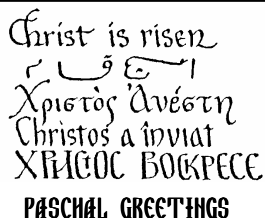 Christ is risen
Χριστὸς Ἀνέστη
Christos a înviat
ХРИСТОС ВОСКРЕСЕ
PASCHAL GREETINGS